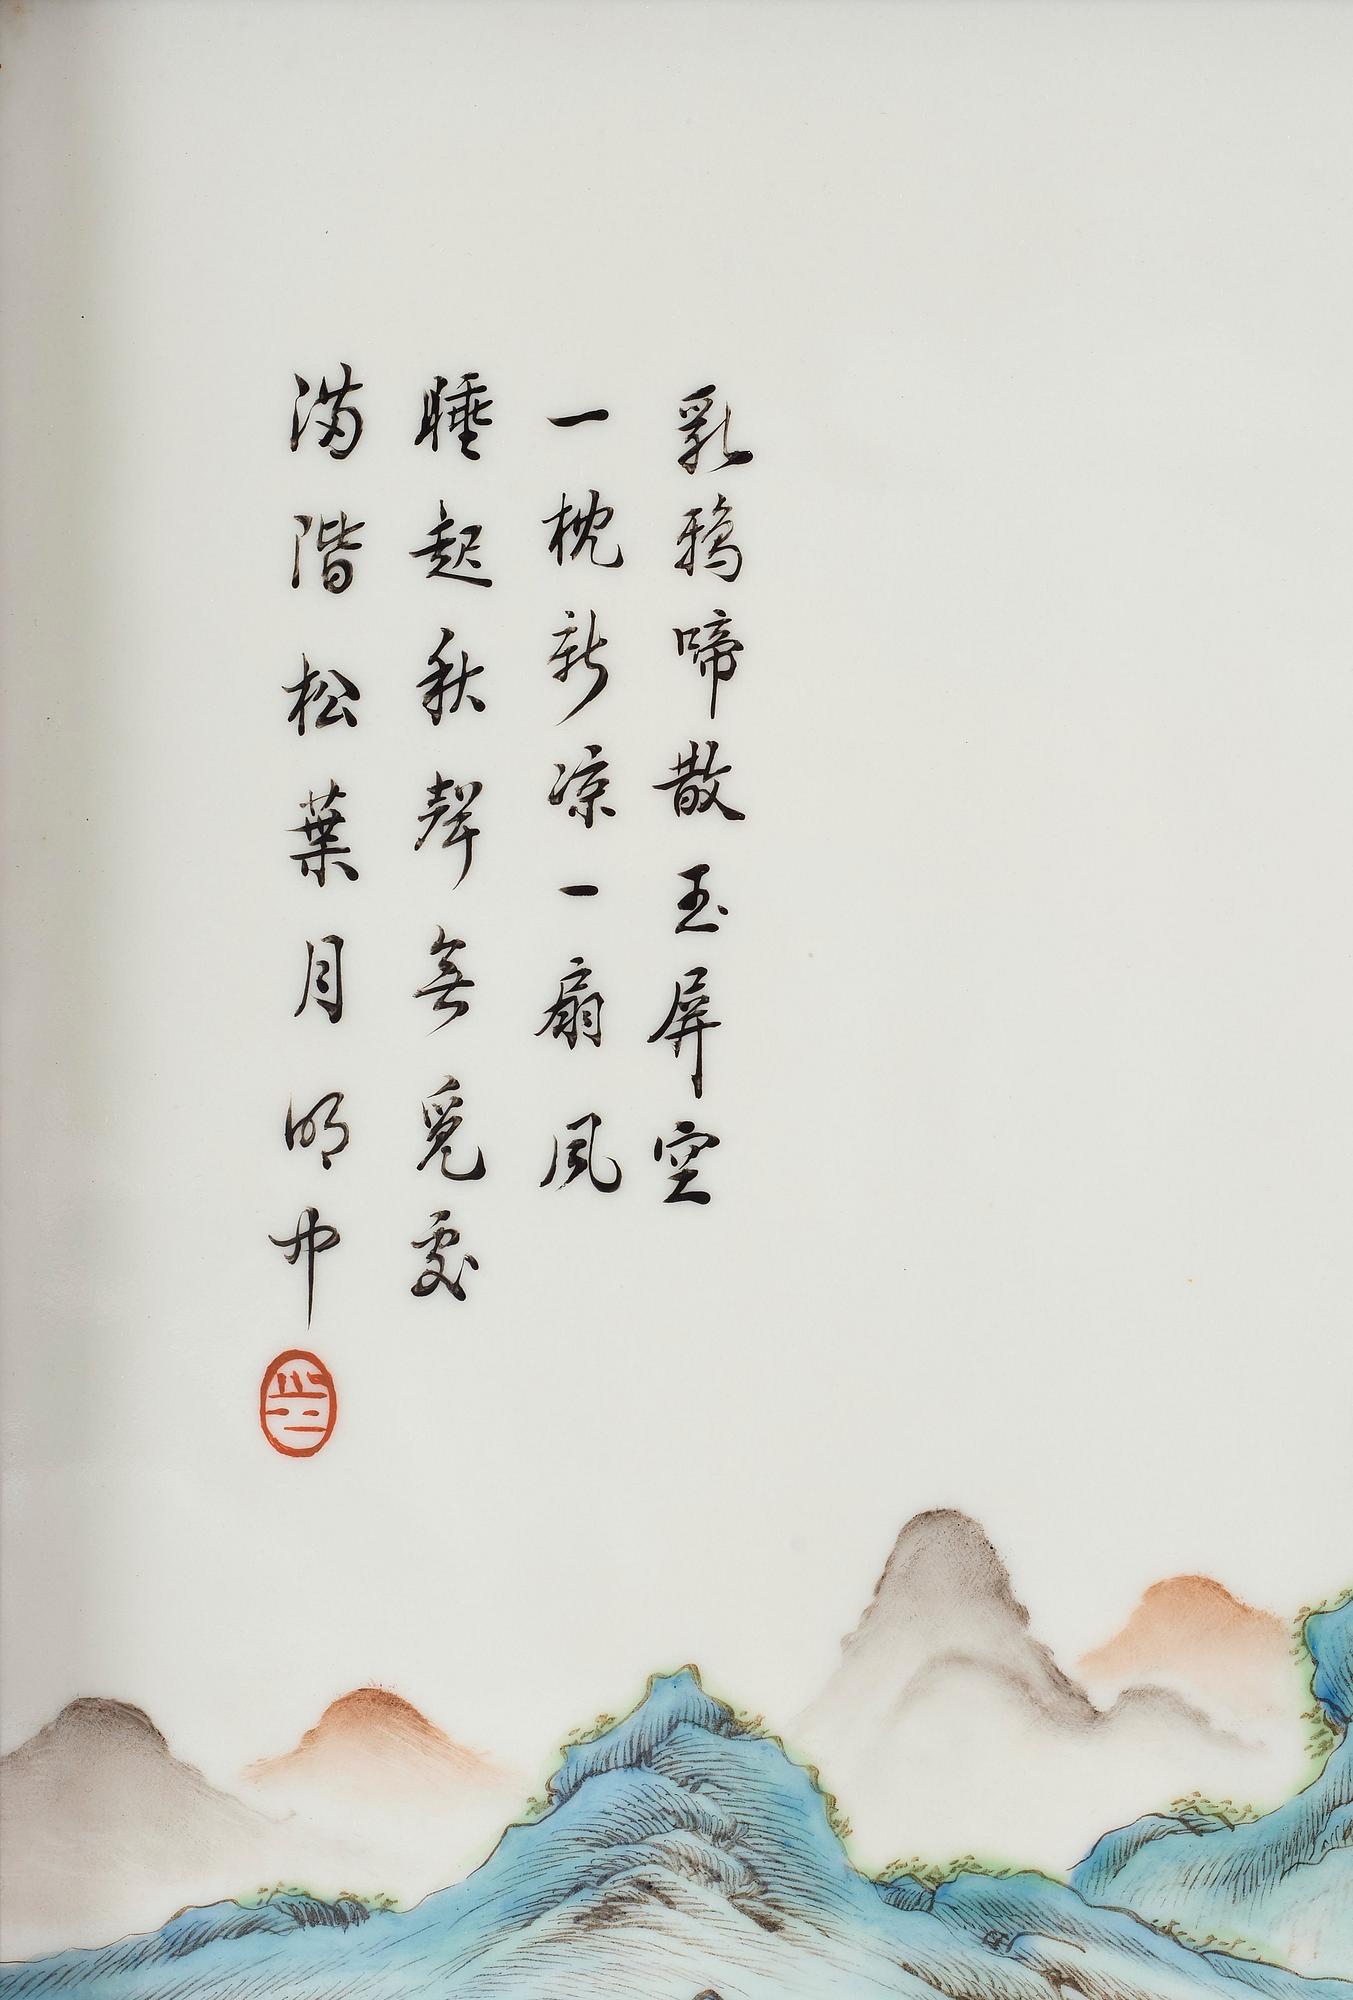 乳鴉啼散玉屏空
一枕新凉一扇風
睡起秋聲無覓處
滿階松葉月明中